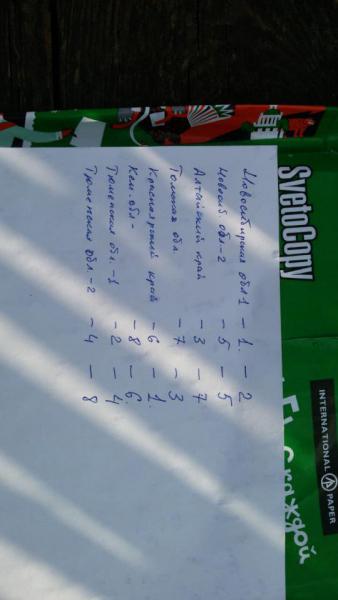 Новосибирская обл 1 - 1. - 2
Новосиб. обл - 2 - 5 - 5
Алтайский край - 3 - 7
Томская обл - 7 - 3
Красноярский край - 6 - 1.
Кем. обл - - 8 - 6.
Тюменская обл. - 1 - 2 - 4
Тюменская обл. - 2 - 4 - 8
SvetoCopy
INTERNATIONAL PAPER
каждой